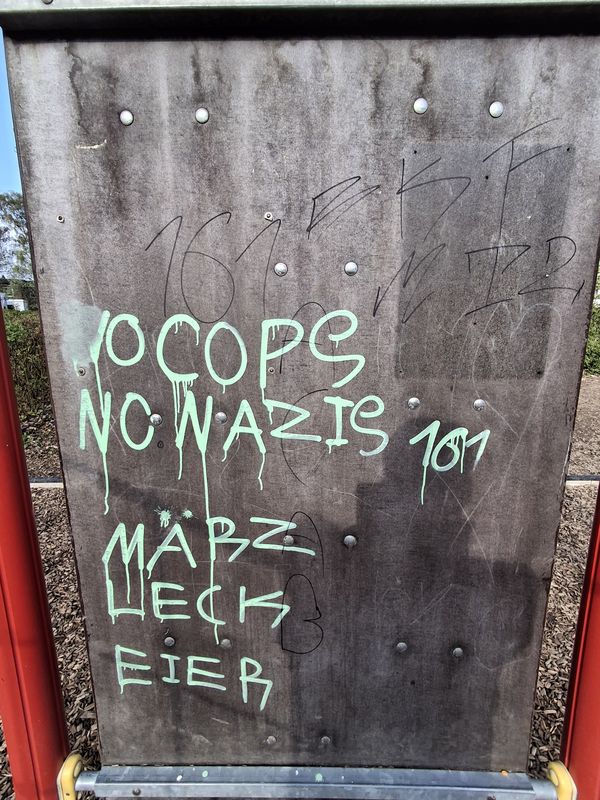 161
NO COPS
NO NAZIS 161
MÄRZ
LECK
EIER